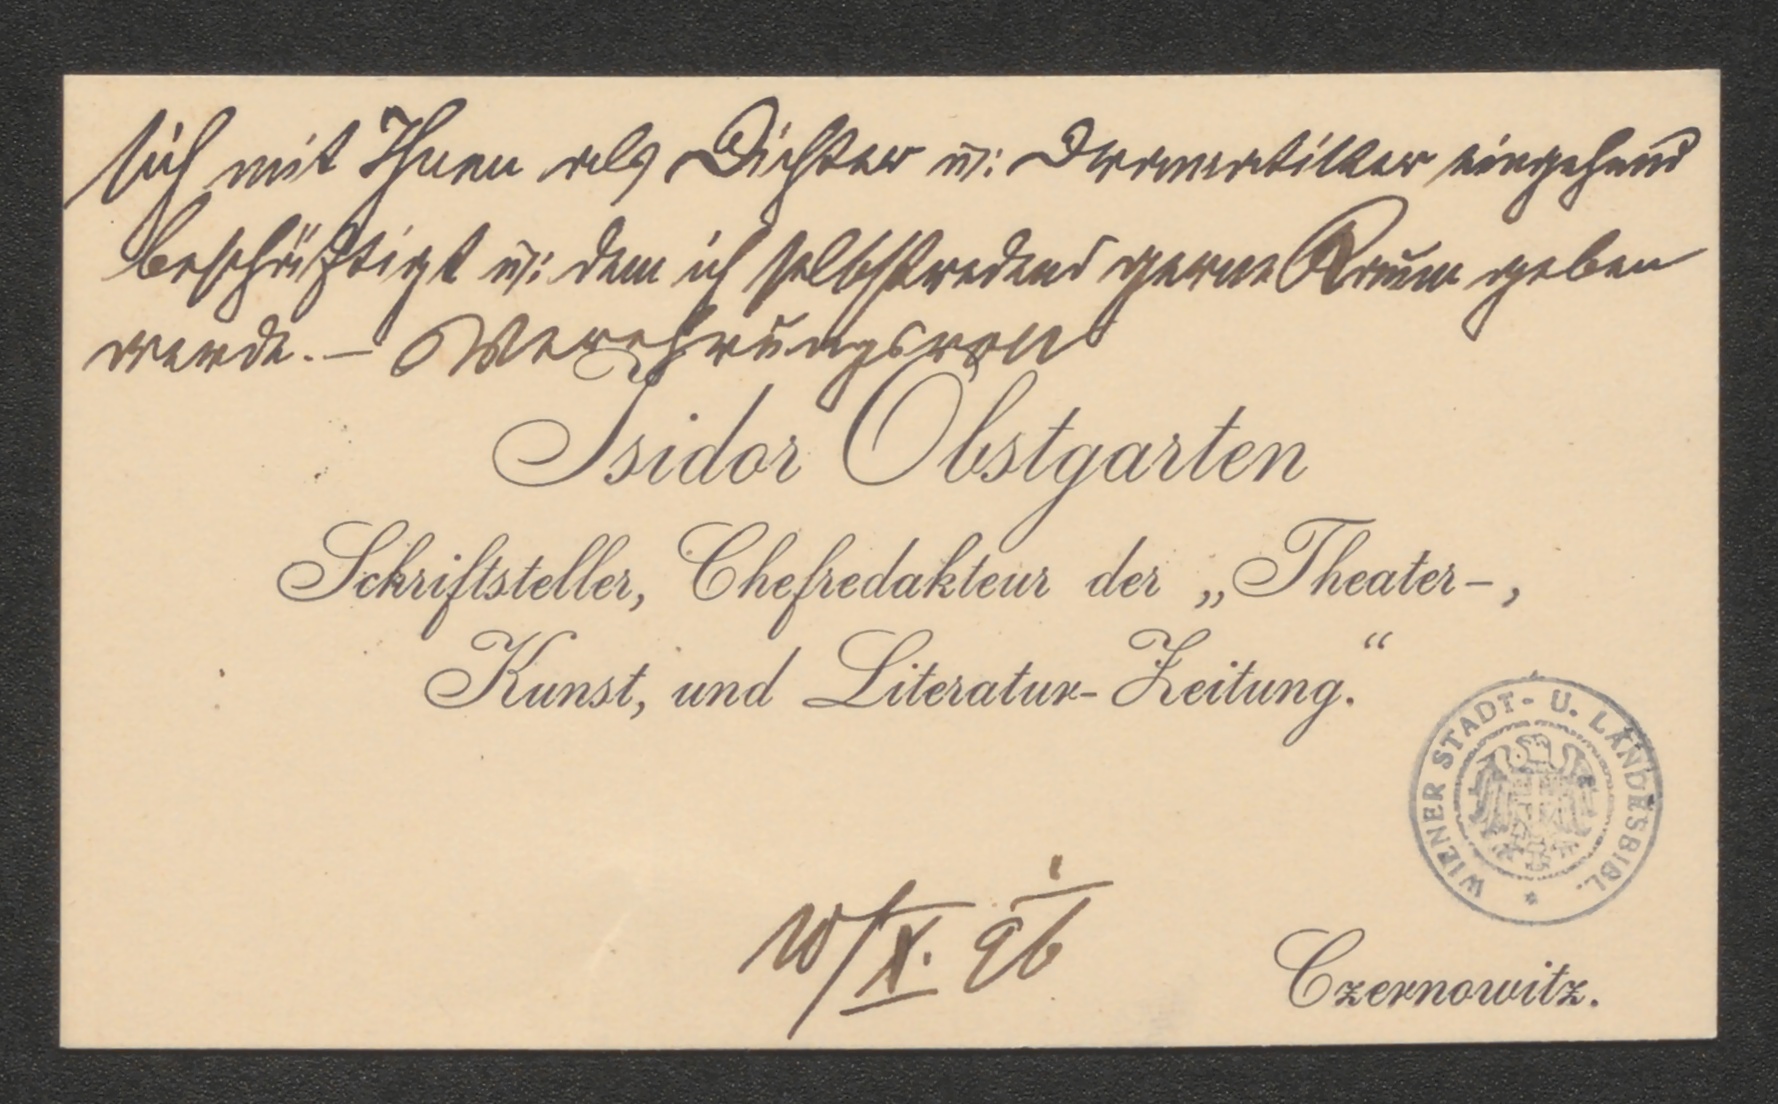 sich mit Ihnen als Dichter u: Dramatiker eingehend
beschäftigt u: dem ich selbstredend gerne Raum geben
werde. — Verehrungsvoll
Isidor Obstgarten
Schriftsteller, Chefredakteur der „Theater-,
Kunst, und Literatur-Zeitung.“
WIENER STADT- U. LANDESBIBL.
10/X. 96
Czernowitz.